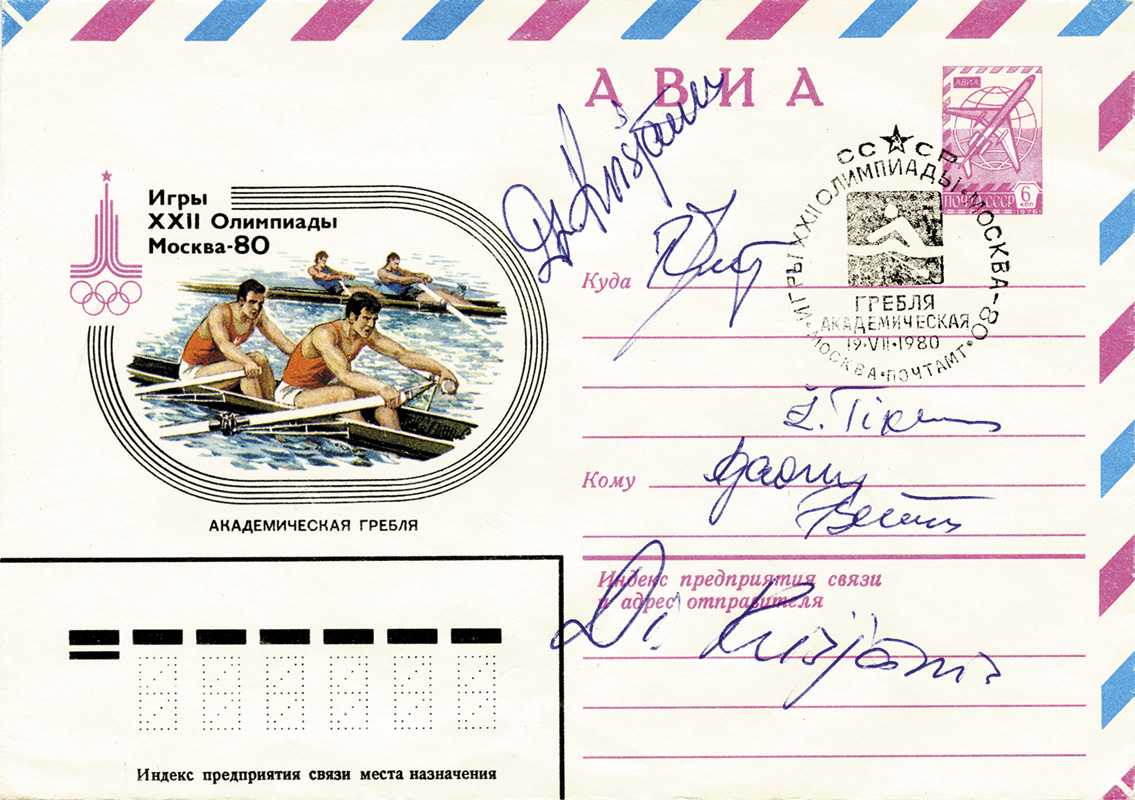 АВИА
АВИА
ПОЧТА СССР
6
КОП
1978
СССР
ИГРЫ XXII ОЛИМПИАДЫ•МОСКВА-80
ГРЕБЛЯ
АКАДЕМИЧЕСКАЯ
19•VII•1980
МОСКВА•ПОЧТАМТ
Игры
XXII Олимпиады
Москва-80
Куда
Кому
АКАДЕМИЧЕСКАЯ ГРЕБЛЯ
Индекс предприятия связи
и адрес отправителя
Индекс предприятия связи места назначения